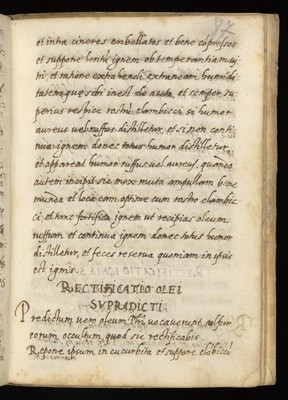 97
et intra cineres embollatos et bene cõpressos
et suppone lentũ ignem ob temperantia muj
tij et ratione extrahendi extraneam humidi
tatem, quę sibi inest de aceto, et semper su
perius respice rostrũ elambicci si humor
aureus vel ruffus distilletur, et si non conti
nua ignem donec totus humor distilletur
et appareat humor ruffus vel aureus, quando
autem incipit sic mox muta ampullam bene
munda et loca eam optime cum rostro elambic
ci, et tunc fortifica ignem ut recipias oleum
ruffum et continua ignem donec totus humor
distilletur, et feces reserua quoniam in ipsis
est ignis
RECTIFICATIO OLEI
SVPRADICTI
Predictum vero oleum Phi vocaverunt sulfur
eorum occultum, quod sic rectificabis
Repone ipsum in cucurbita et suppone elãbiccũ